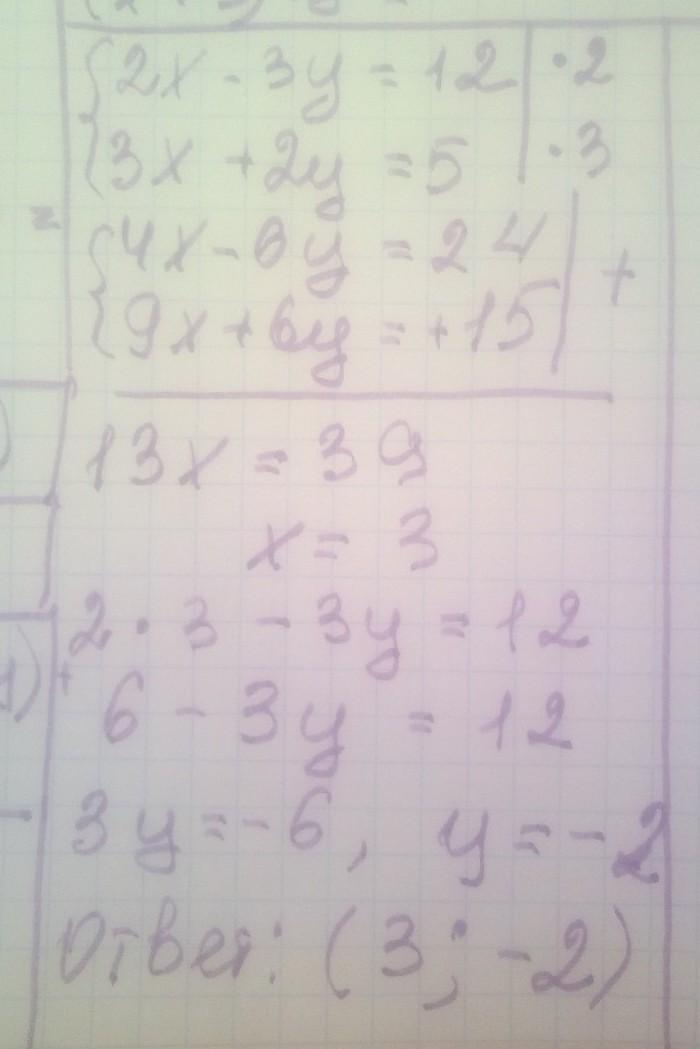 2x - 3y = 12 | · 2
3x + 2y = 5 | · 3
4x - 6y = 24 | +
9x + 6y = +15
13x = 39
x = 3
2 · 3 - 3y = 12
6 - 3y = 12
3y = -6, y = -2
Ответ: (3; -2)